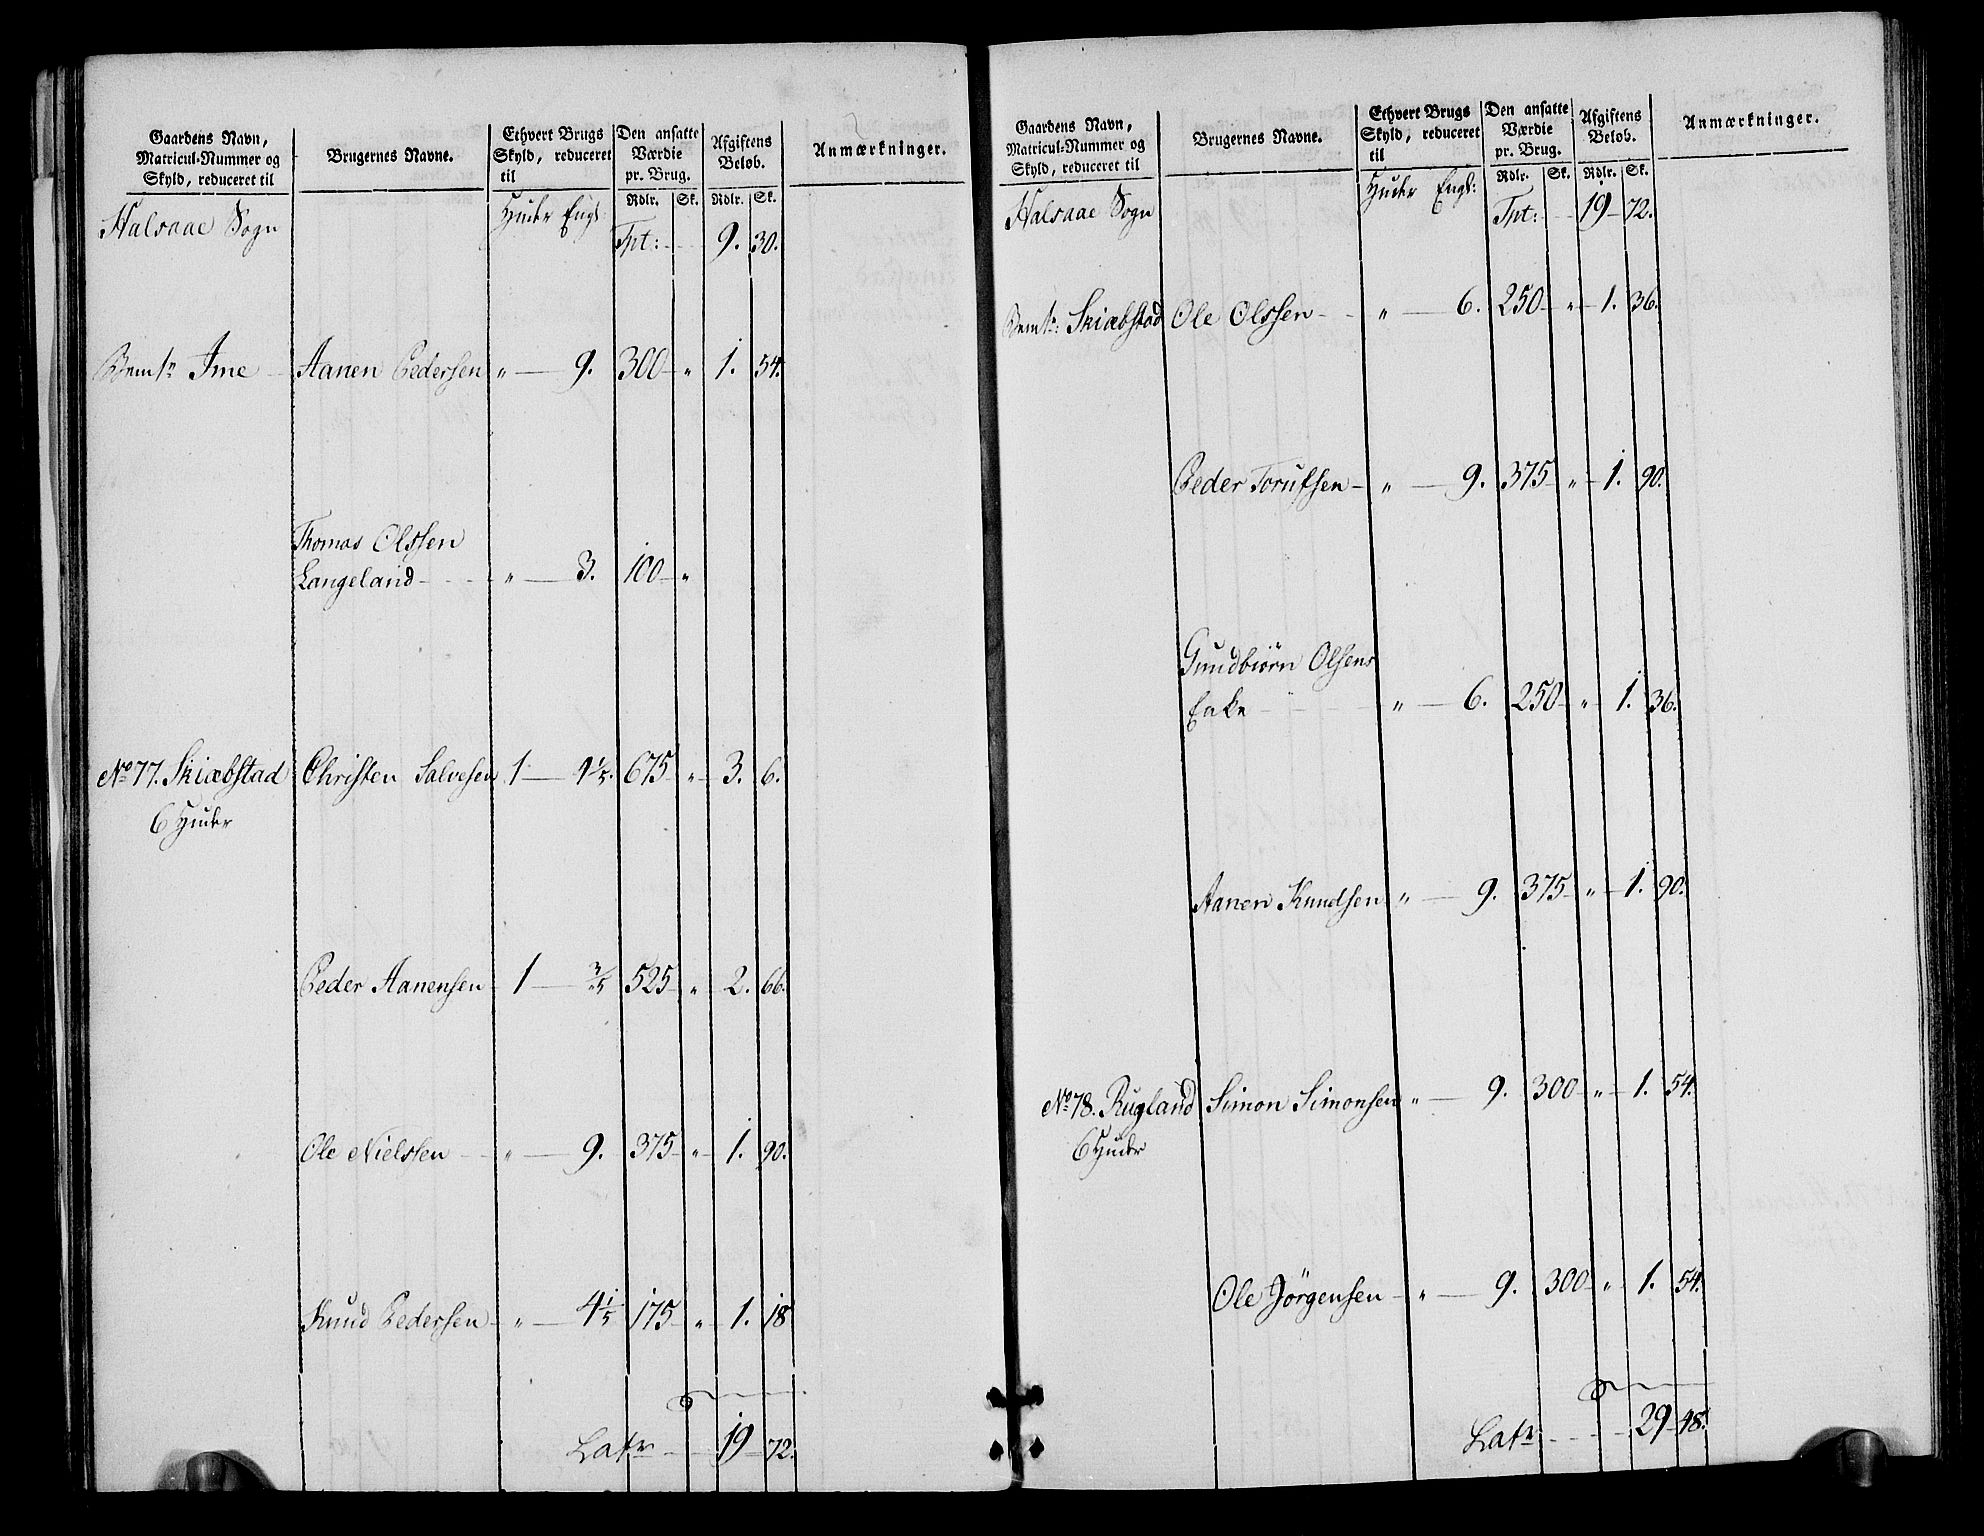 Gaardens Navn,
Matricul-Nummer og
Skyld, reduceret til
Brugernes Navne.
Ethvert Brugs
Skyld, reduceret
til
Den ansatte
Værdie
pr. Brug.
Afgiftens
Beløb.
Anmærkninger.
Rdlr. Sk. Rdlr. Sk.
Halsaae Sogn Huder Engl:
Tpt: 9. 30.
Bemte Ime Aanen Pedersen " 9. 300 " 1. 54.
Thomas Olssen
Langeland " 3. 100 "
No 77. Skiæbstad Christen Salvesen 1 4 1/5. 675 " 3. 6.
6 Huder
Peder Aanensen 1 3/5 525 " 2. 66.
Ole Nielssen " 9. 375 " 1. 90.
Knud Pedersen " 4 1/5 175 " 1. 18
Latr 19 72.
Gaardens Navn,
Matricul-Nummer og
Skyld, reduceret til
Brugernes Navne.
Ethvert Brugs
Skyld, reduceret
til
Den ansatte
Værdie
pr. Brug.
Afgiftens
Beløb.
Anmærkninger.
Rdlr. Sk. Rdlr. Sk.
Halsaae Sogn Huder Engl:
Tpt: 19 72.
Bemte: Skiæbstad Ole Olssen " 6. 250 " 1. 36.
Peder Torufsen " 9. 375 " 1. 90.
Gundbiørn Olsens
Enke " 6. 250 " 1. 36.
Aanen Knudsen " 9. 375 " 1. 90.
No 78. Rugland Simon Simonsen " 9. 300 " 1. 54.
6 Huder
Ole Jörgensen " 9. 300 " 1. 54.
Latr 29 48.